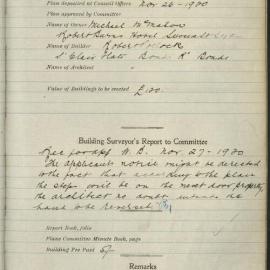 Plan deposited at Council Offices Nov 26 - 1900
Plan approved by Committee
Name of Owner Michael McMahon
Robert Burns Hotel
Name of Builder Robert
St Clair Flats Bond
Name of Architect
Value of Buildings to be erected £100
Building Surveyor's Report to Committee
Rec for app W. B. Nov 27 - 1900
The applicants notice might be directed
to the fact that according to the plan
the steps will be on the next door property
the architect no doubt intends the
hand to be reversed
Report Book, folio
Plans Committee Minute Book, page
Building Fee Paid 5/-
Remarks